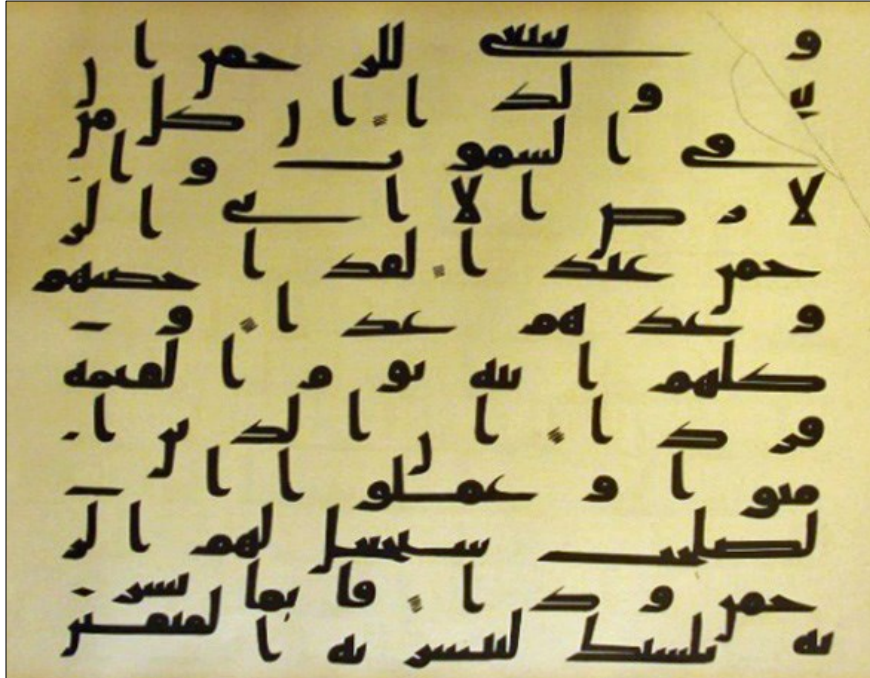 و ينبغي للرحمن ان
و لدا ان كل من
في السموت و ا
لا رض الا اتي الر
حمن عبدا لقد ا حصهم
و عدهم عدا و
كلهم اتيه يوم القيمه
فردا ان الذين ا
منوا و عملوا ا
لصلحت سيجعل لهم الر
حمن ودا فانما يسر
نه بلسنك لتبشر به المتقين